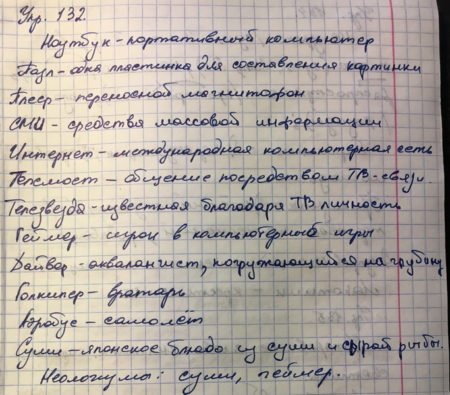 Упр. 132
Ноутбук - портативный компьютер
Пазл - одна пластинка для составления картинки
Плеер - переносной магнитофон
СМИ - средства массовой информации
Интернет - международная компьютерная сеть
Телемост - общение посредством ТВ-связи.
Телезвезда - известная благодаря ТВ личность
Геймер - игрок в компьютерные игры
Дайвер - аквалангист, погружающийся на глубину
Голкипер - вратарь
Аэробус - самолёт
Суши - японское блюдо из суши и сырой рыбы.
Неологизмы: суши, геймер.